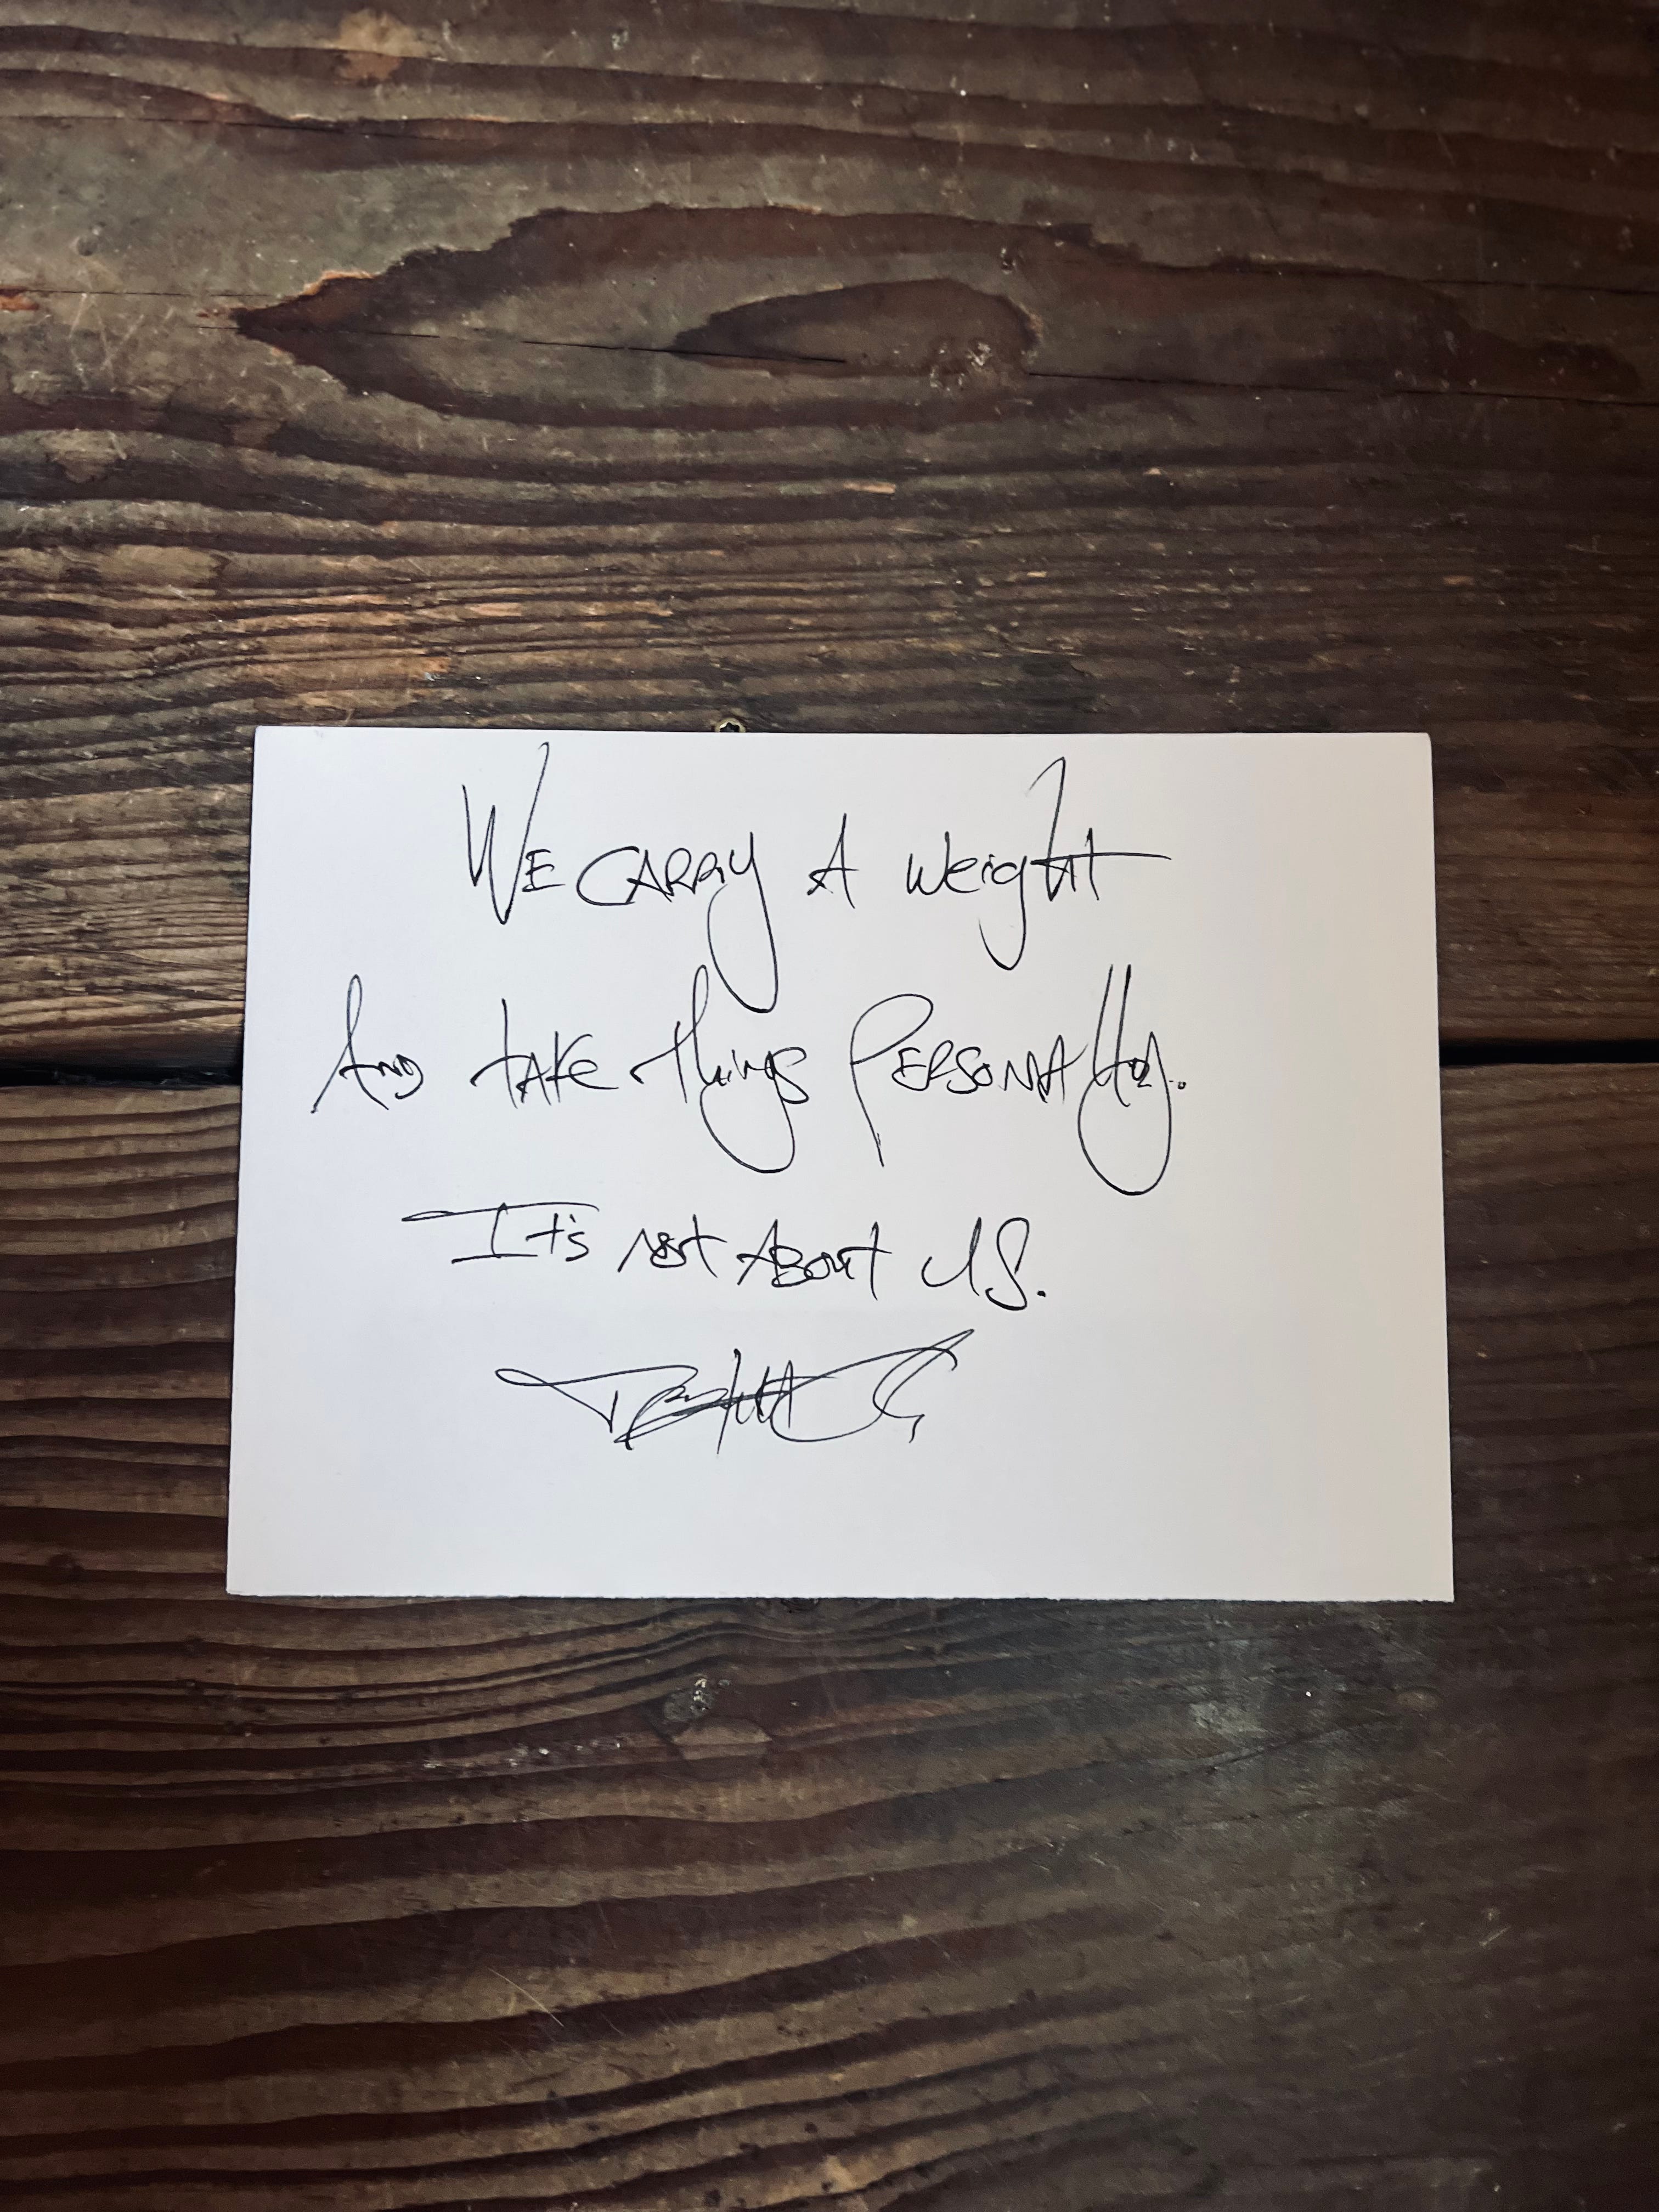 WE CARRY A Weight
AND TAKE things PERSONAlly.
It's Not ABout US.